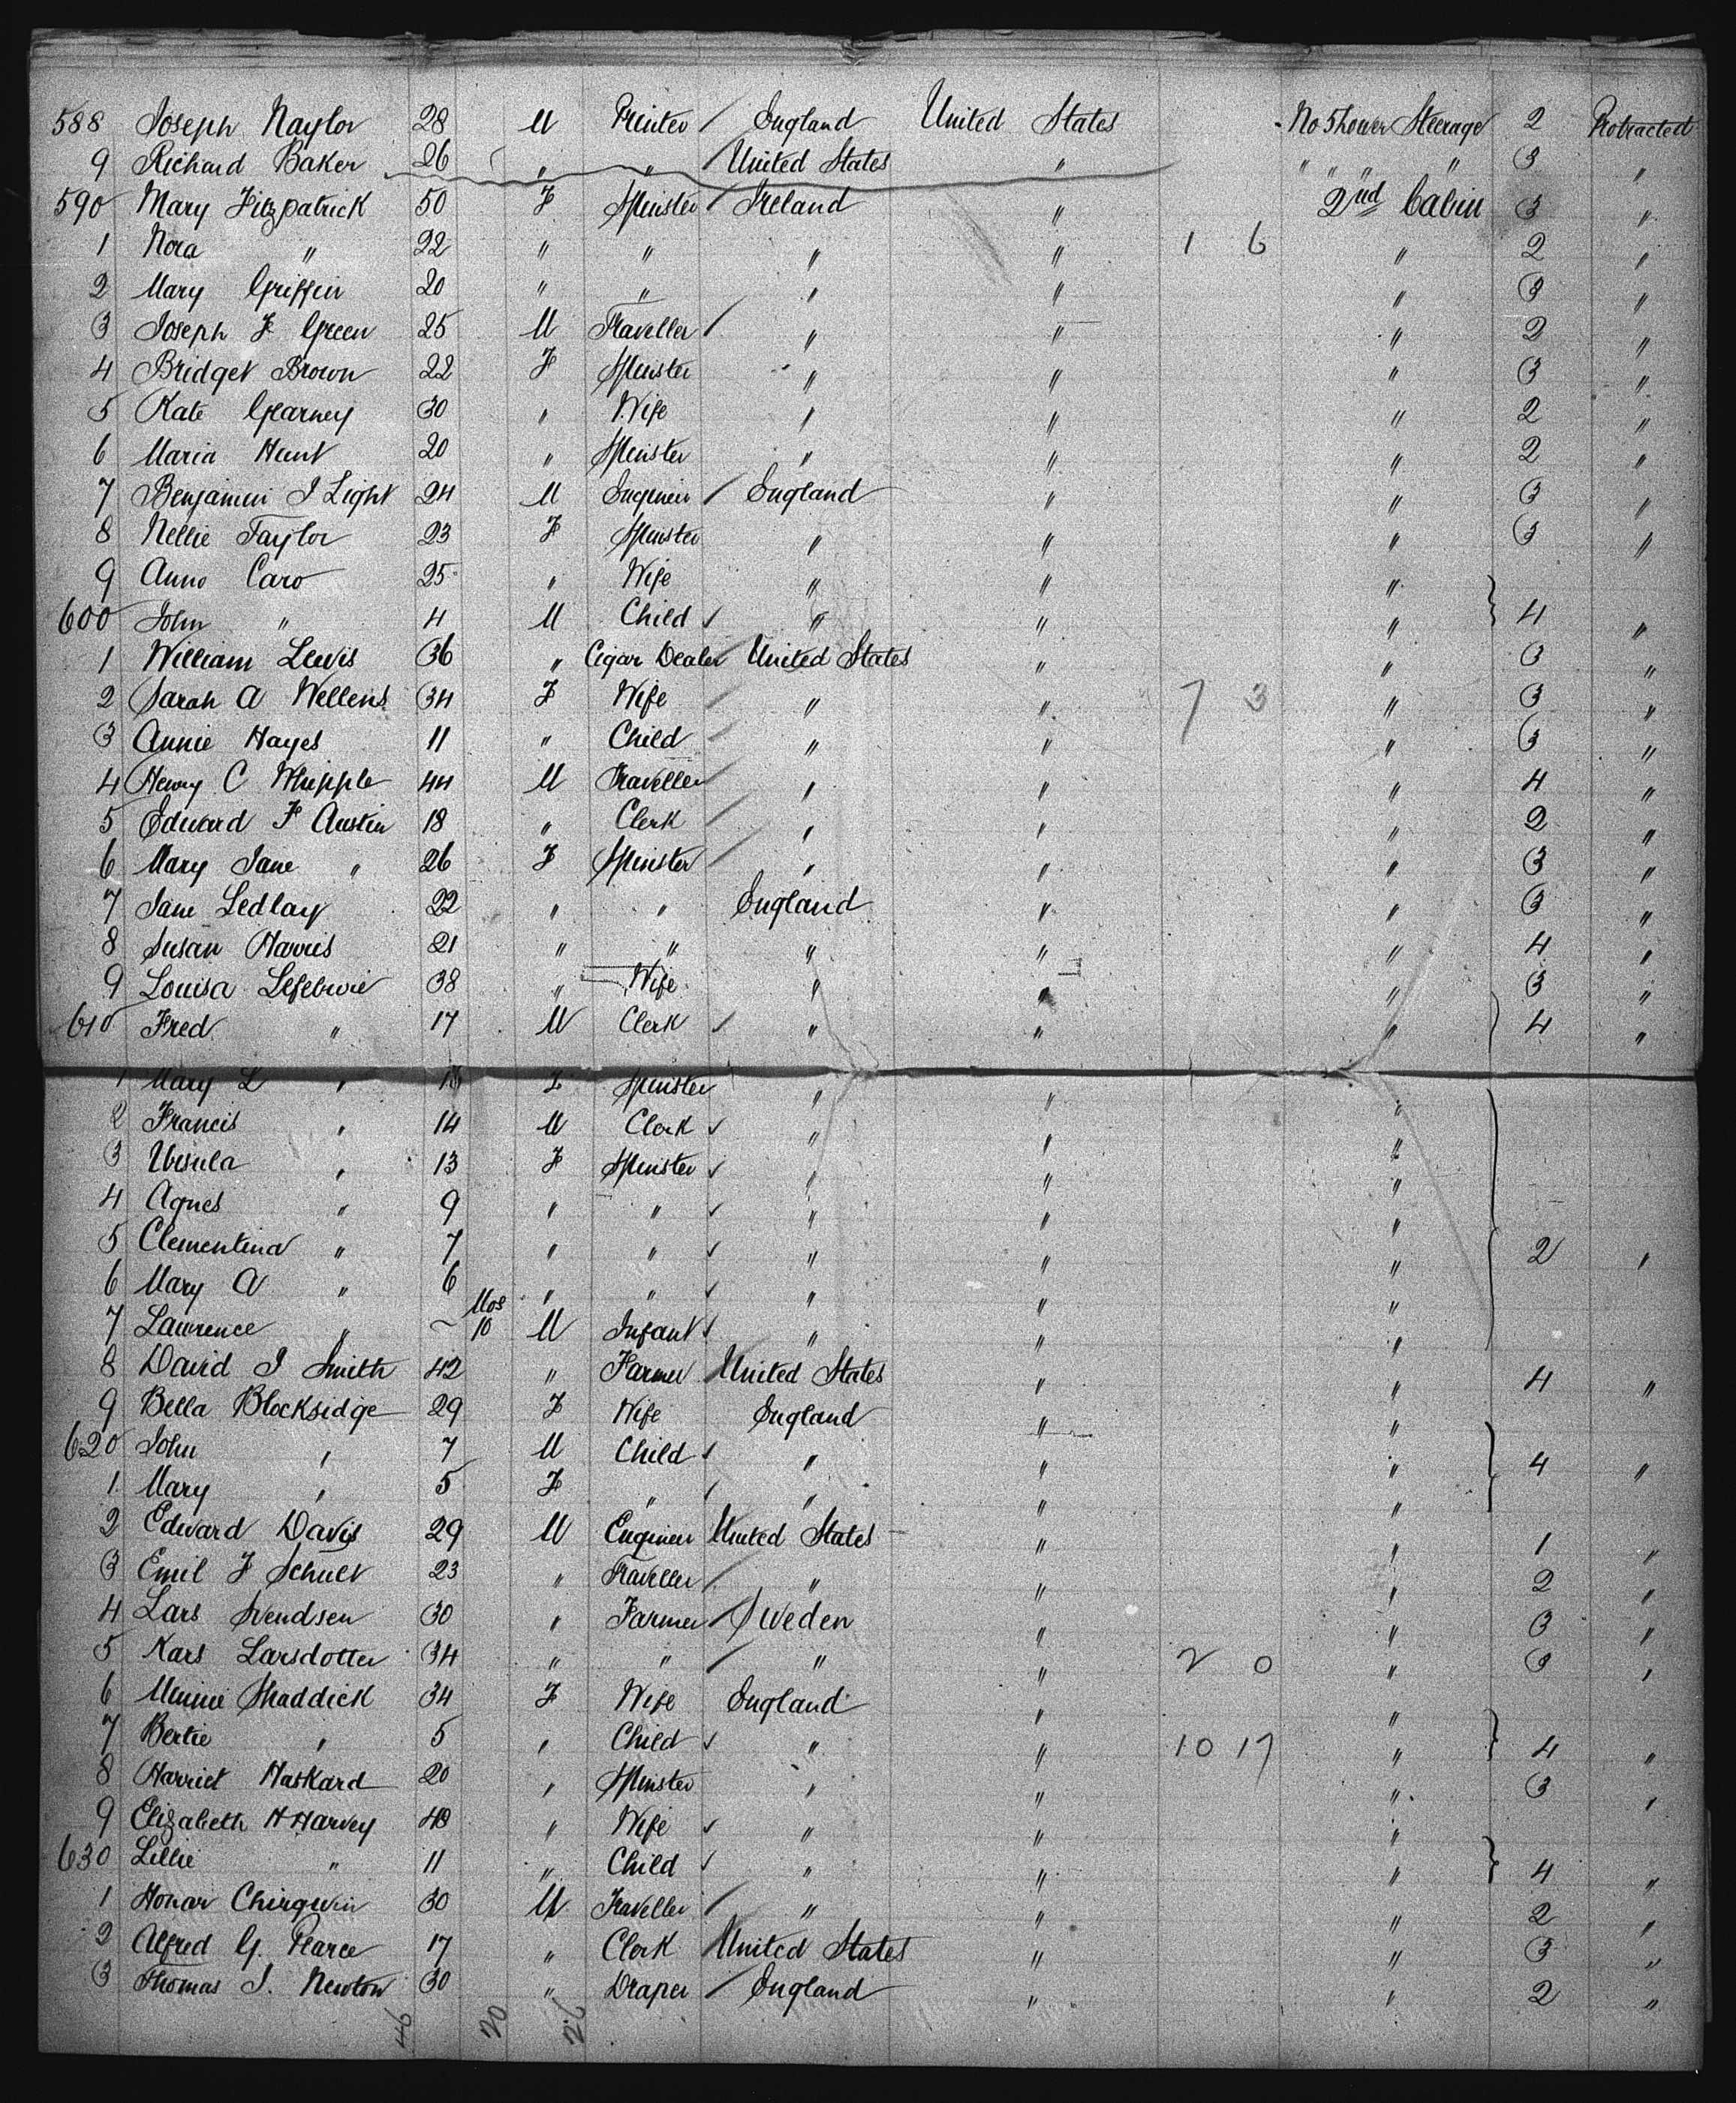 588 Joseph Naylor 28 M Printer / England United States No 5 Lower Steerage 2 Protracted
9 Richard Baker 26 " " / United States " " " " " 3 "
590 Mary Fitzpatrick 50 F Spinster / Ireland " 2nd Cabin 3 "
1 Nora " 22 " " " " 1 6 " 2 "
2 Mary Griffin 20 " " " " " 3 "
3 Joseph F Green 25 M Traveller / " " " 2 "
4 Bridget Brown 22 F Spinster " " " 3 "
5 Kate Gearney 30 " Wife " " " 2 "
6 Maria Hunt 20 " Spinster " " " 2 "
7 Benjamin J Light 24 M Engineir / England " " 3 "
8 Nellie Taylor 23 F Spinster " " " 3 "
9 Anno Caro 25 " Wife " " "
600 John " 4 M Child ✓ " " " } 4 "
1 William Lewis 36 " Cigar Dealer United States " " 3 "
2 Sarah A Wellens 34 F Wife / " " 7 3 " 3 "
3 Annie Hayes 11 " Child / " " " 3 "
4 Henry C Whipple 44 M Traveller / " " " 4 "
5 Edward F Austin 18 " Clerk / " " " 2 "
6 Mary Jane " 26 F Spinster / " " " 3 "
7 Jane Ledlay 22 " " England " " 3 "
8 Susan Harris 21 " " " " " 4 "
9 Louisa Lefebwie 38 " Wife " " " 3 "
610 Fred " 17 M Clerk ✓ " " " } 4 "
1 Mary L " F Spinster " " "
2 Francis " 14 M Clerk ✓ " " "
3 Ursula " 13 F Spinster ✓ " " "
4 Agnes " 9 " " ✓ " " "
5 Clementina " 7 " " ✓ " " " } 2 "
6 Mary A " 6 " " ✓ " " "
7 Lawrence " ~ Mos 10 M Infant ✓ " " "
8 David J Smith 42 " Farmer / United States " " 4 "
9 Bella Blocksidge 29 F Wife England " "
620 John " 7 M Child ✓ " " " } 4 "
1 Mary " 5 F " ✓ " " "
2 Edward Davis 29 M Engineer United States " " 1 "
3 Emil F Schult 23 " Traveller / " " " 2 "
4 Lars Svendsen 30 " Farmer / Sweden " " 3 "
5 Kars Larsdotter 34 " " / " " 2 0 " 3 "
6 Minnie Shaddick 34 F Wife England " "
7 Bertie " 5 " Child ✓ " " 10 17 " } 4 "
8 Harriet Haskard 20 " Spinster " " " 3 "
9 Elizabeth H Harvey 48 " Wife ✓ " " "
630 Lillie " 11 " Child ✓ " " " } 4 "
1 Honar Chirgwin 30 M Traveller / " " " 2 "
2 Alfred G. Pearce 17 " Clerk / United States " " 3 "
3 Thomas J. Newton 30 " Draper / England " " 2 "
46 20 26